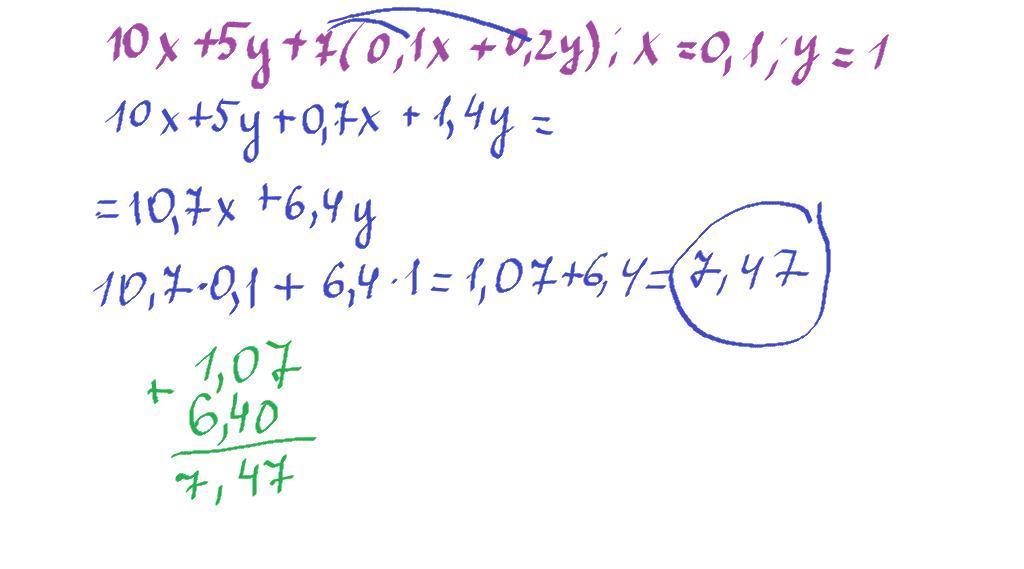 10x+5y+7(0,1x+0,2y); x=0,1; y=1
10x+5y+0,7x+1,4y=
=10,7x+6,4y
10,7·0,1+6,4·1=1,07+6,4=7,47
+ 1,07
6,40
7,47